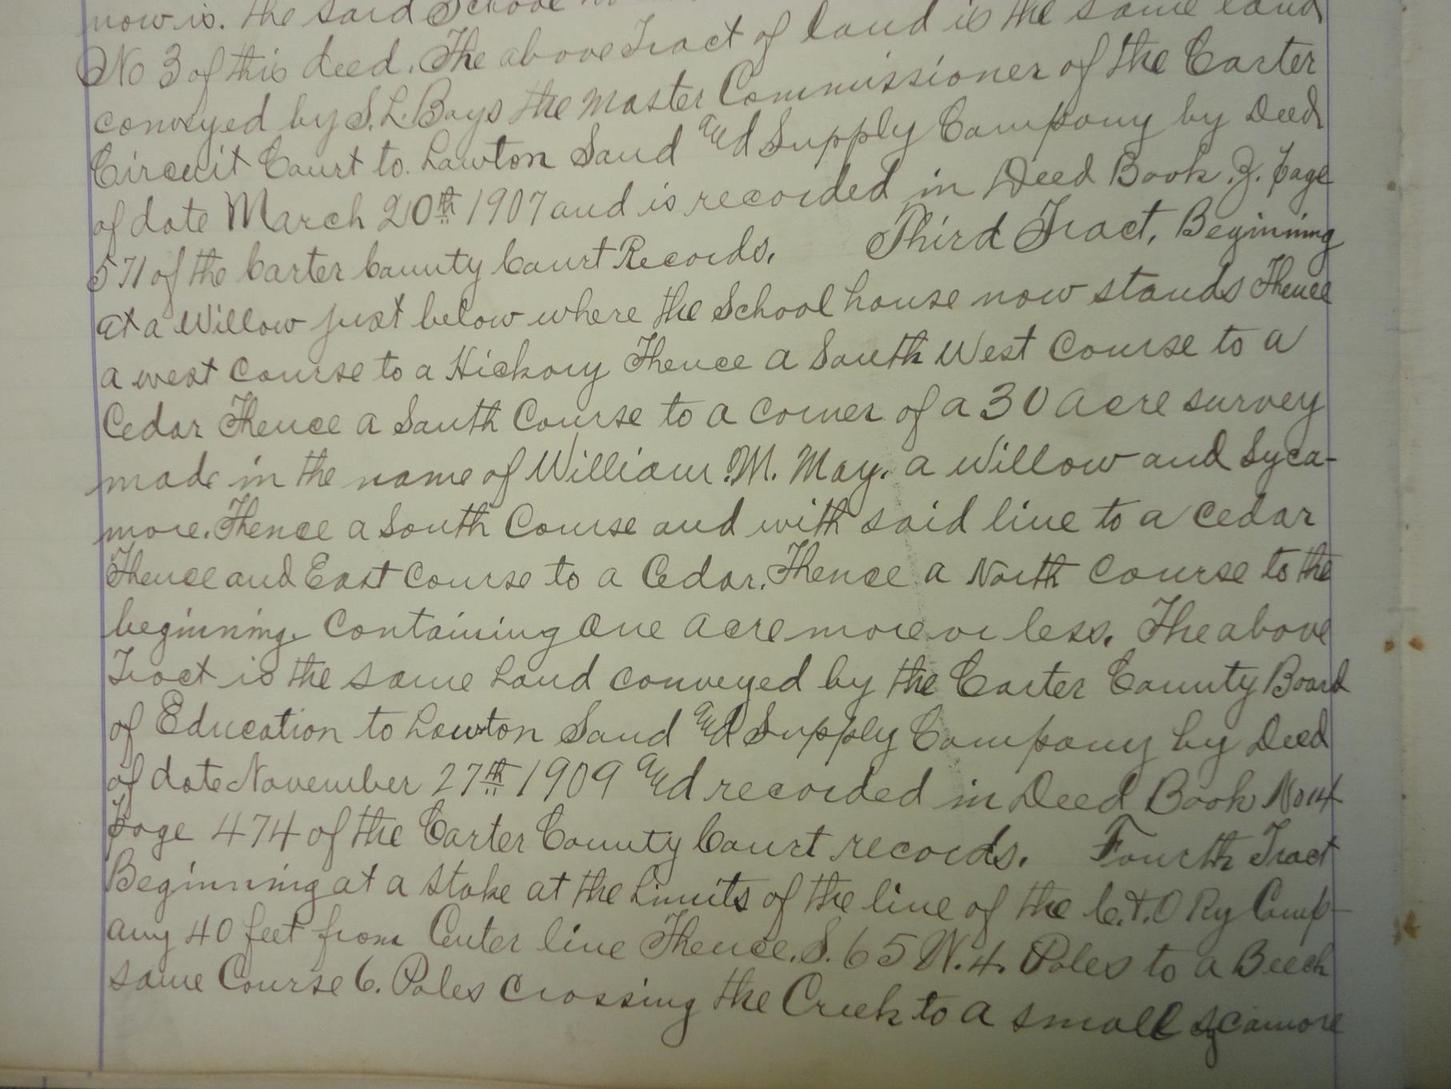 now is. the said School
No 3 of this deed. The above Tract of land is the same land
conveyed by S. L. Bays the Master Commissioner of the Carter
Circuit Court to. Lawton Sand and Supply Company by Deed
of date March 20th 1907 and is recorded in Deed Book. Z. Page
571 of the Carter County Court Records. Third Tract, Beginning
at a Willow just below where the School house now stands Thence
a west Course to a Hickory Thence a South West Course to a
Cedar Thence a South Course to a corner of a 30 acre survey
made in the name of William M. May. a Willow and Syca-
more. Thence a South Course and with said line to a cedar
Thence and East Course to a Cedar. Thence a North Course to the
beginning. Containing One acre more or less. The above
Tract is the same Land conveyed by the Carter County Board
of Education to Lawton Sand and Supply Company by Deed
of date November 27th 1909 and recorded in Deed Book No 14
Page 474 of the Carter County Court records. Fourth Tract
Beginning at a Stake at the Limits of the line of the C. & O Ry Comp-
any 40 feet from Center line Thence. S. 65 W. 4. Poles to a Beech
same Course 6. Poles crossing the Creek to a small sycamore